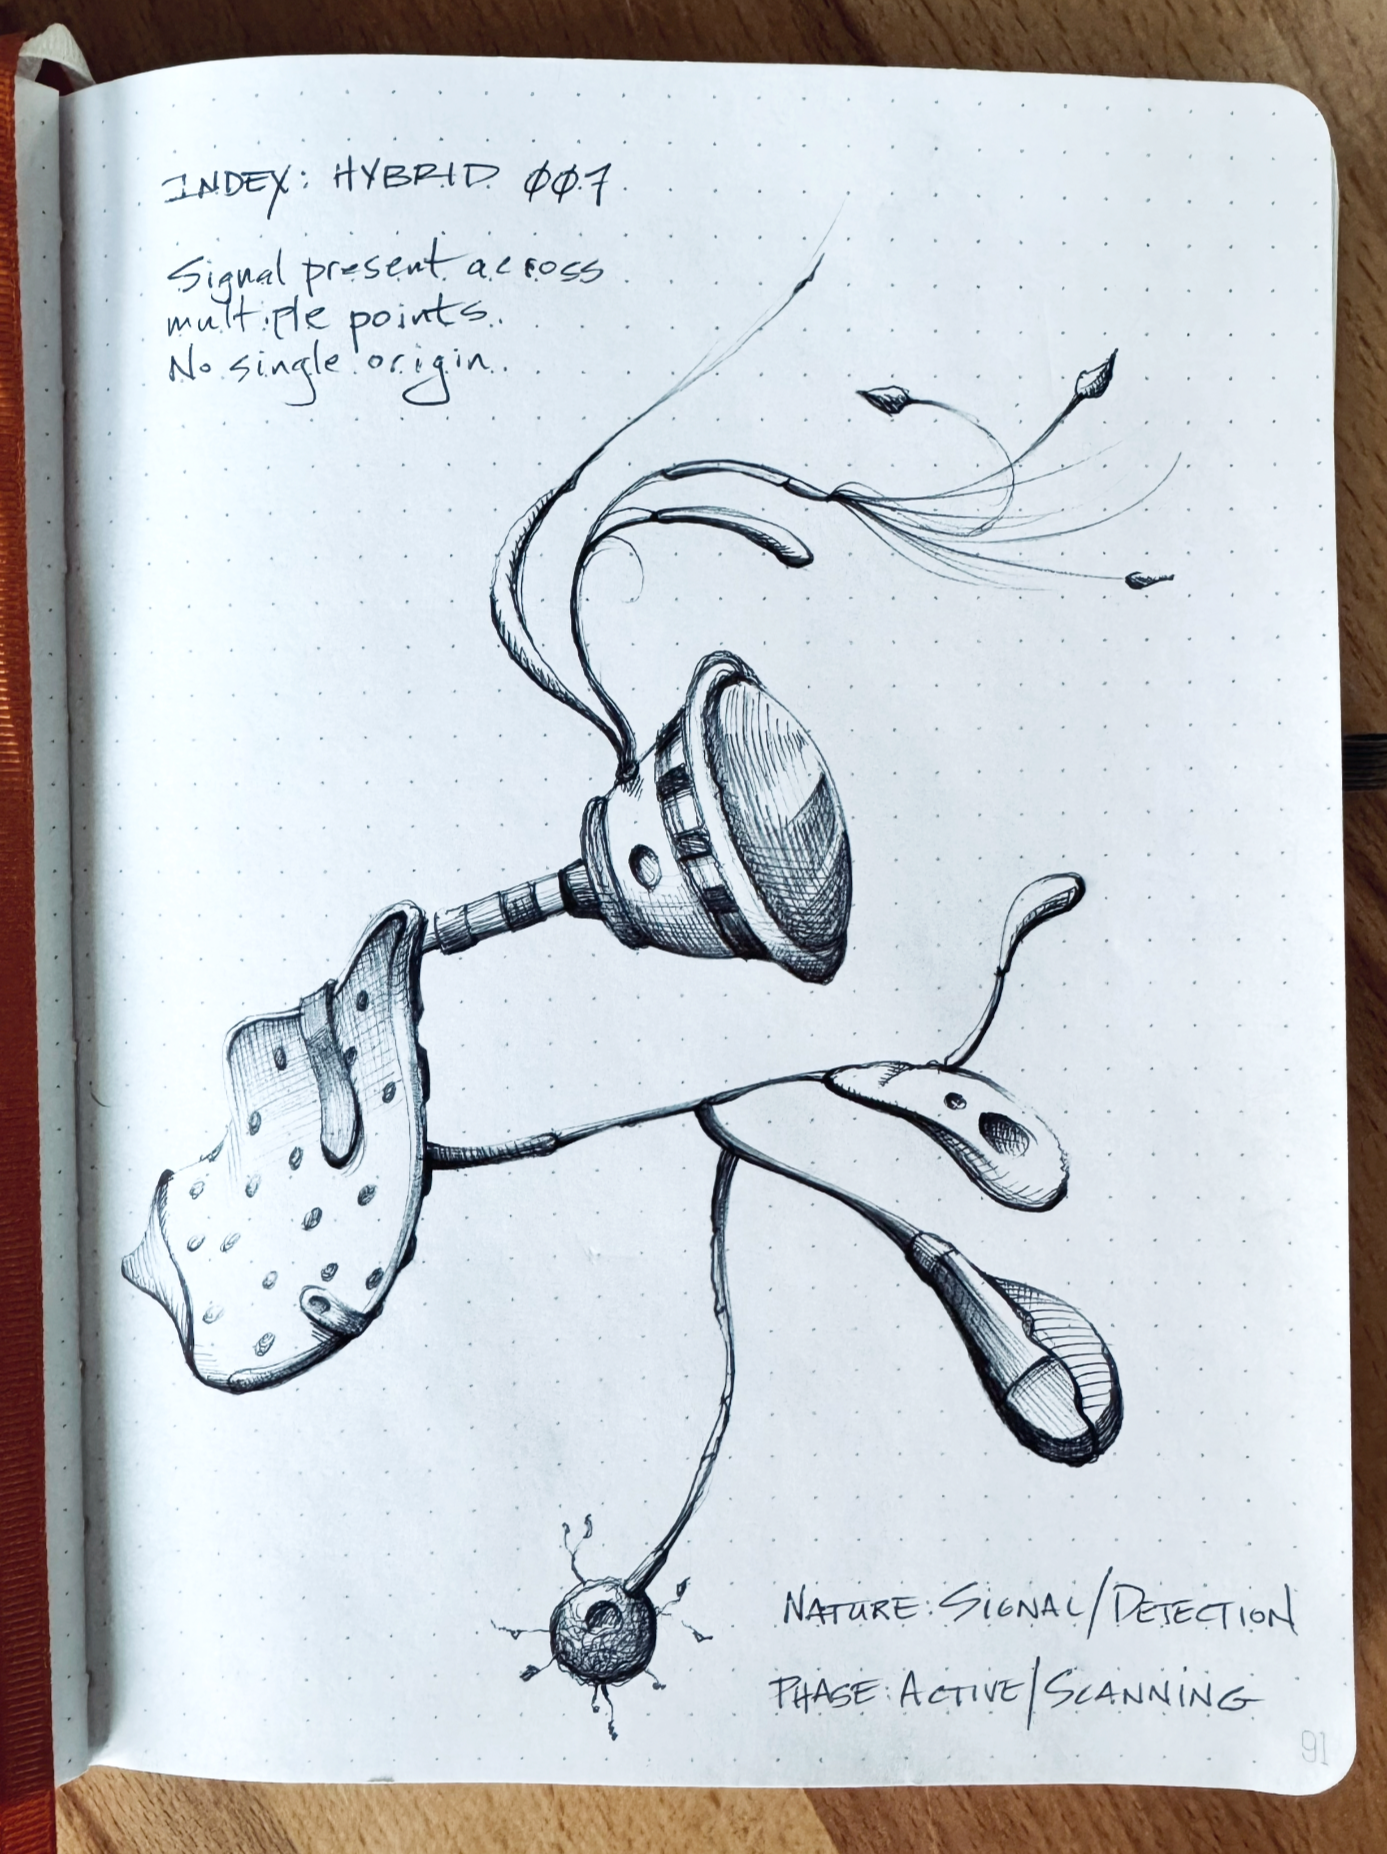 INDEX: HYBRID 007
Signal present across
multiple points.
No single origin.
NATURE: SIGNAL/DETECTION
PHASE: ACTIVE/SCANNING
91